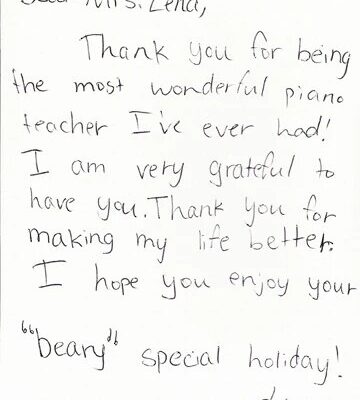 Dear Mrs. Lena,
Thank you for being
the most wonderful piano
teacher I've ever had!
I am very grateful to
have you. Thank you for
making my life better.
I hope you enjoy your
"beary" special holiday!